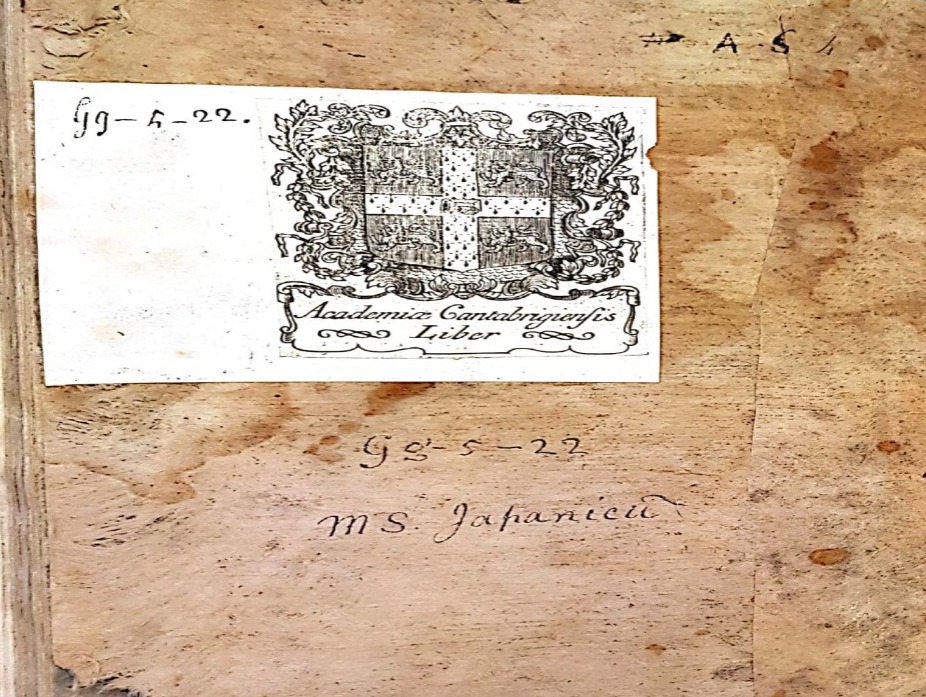 A S
Gg-5-22.
Academiæ Cantabrigienſis
Liber
Gg-5-22
MS. Japanicū